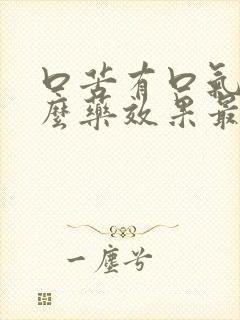 口苦有口氣
麼藥效果最
一塵兮